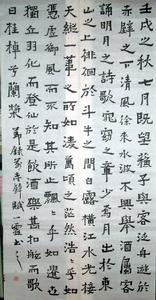 壬戌之秋七月既望蘇子與客泛舟遊於
赤壁之下清風徐來水波不興舉酒屬客
誦明月之詩歌窈窕之章少焉月出於東
山之上徘徊於斗牛之間白露橫江水光接
天縱一葦之所如凌萬頃之茫然浩浩乎如
憑虛御風而不知其所止飄飄乎如遺世
獨立羽化而登仙於是飲酒樂甚扣舷而歌
曰桂棹兮蘭槳 錄赤壁賦 一雲